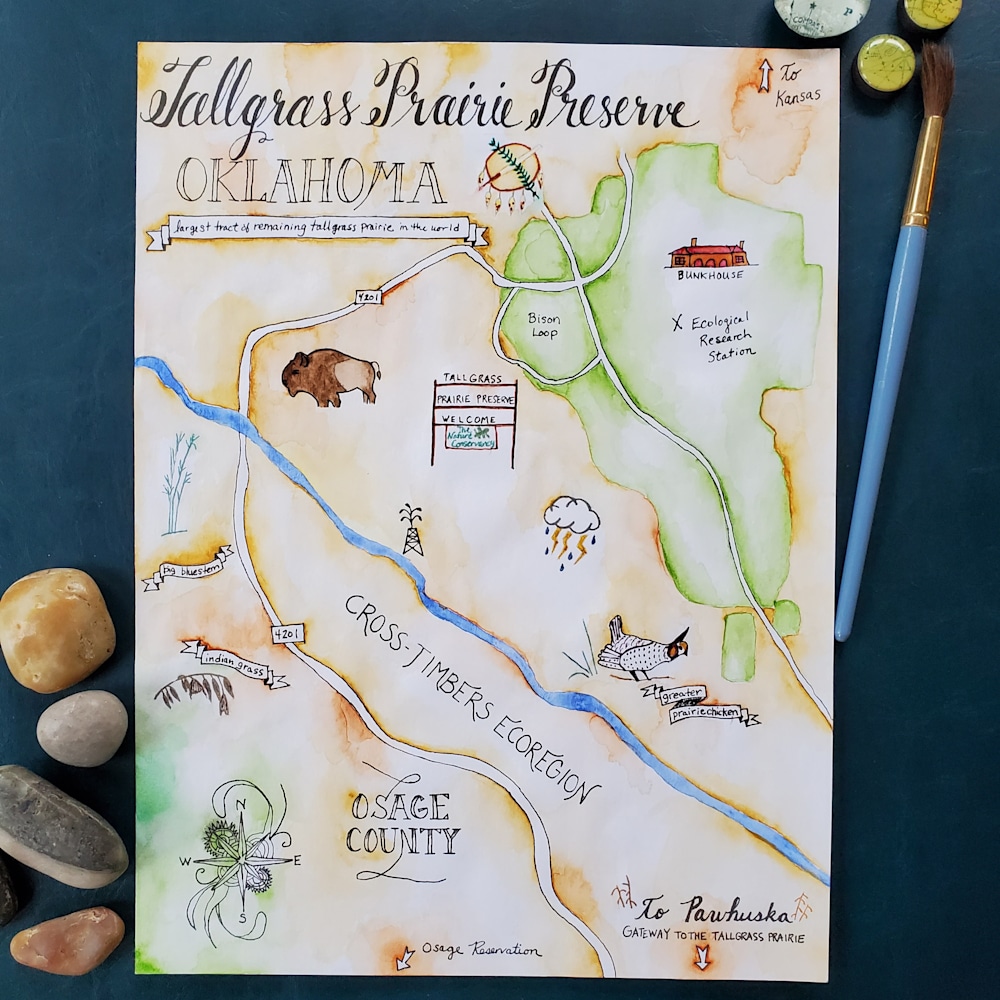 Tallgrass Prairie Preserve
To
Kansas
OKLAHOMA
largest tract of remaining tallgrass prairie in the world
BUNKHOUSE
4201
Bison
Loop
X Ecological
Research
Station
TALLGRASS
PRAIRIE PRESERVE
WELCOME
The
Nature
Conservancy
big bluestem
CROSS-TIMBERS ECOREGION
4201
indian grass
greater
prairie chicken
OSAGE
COUNTY
N
W E
S
To Pawhuska
GATEWAY TO THE TALLGRASS PRAIRIE
Osage Reservation